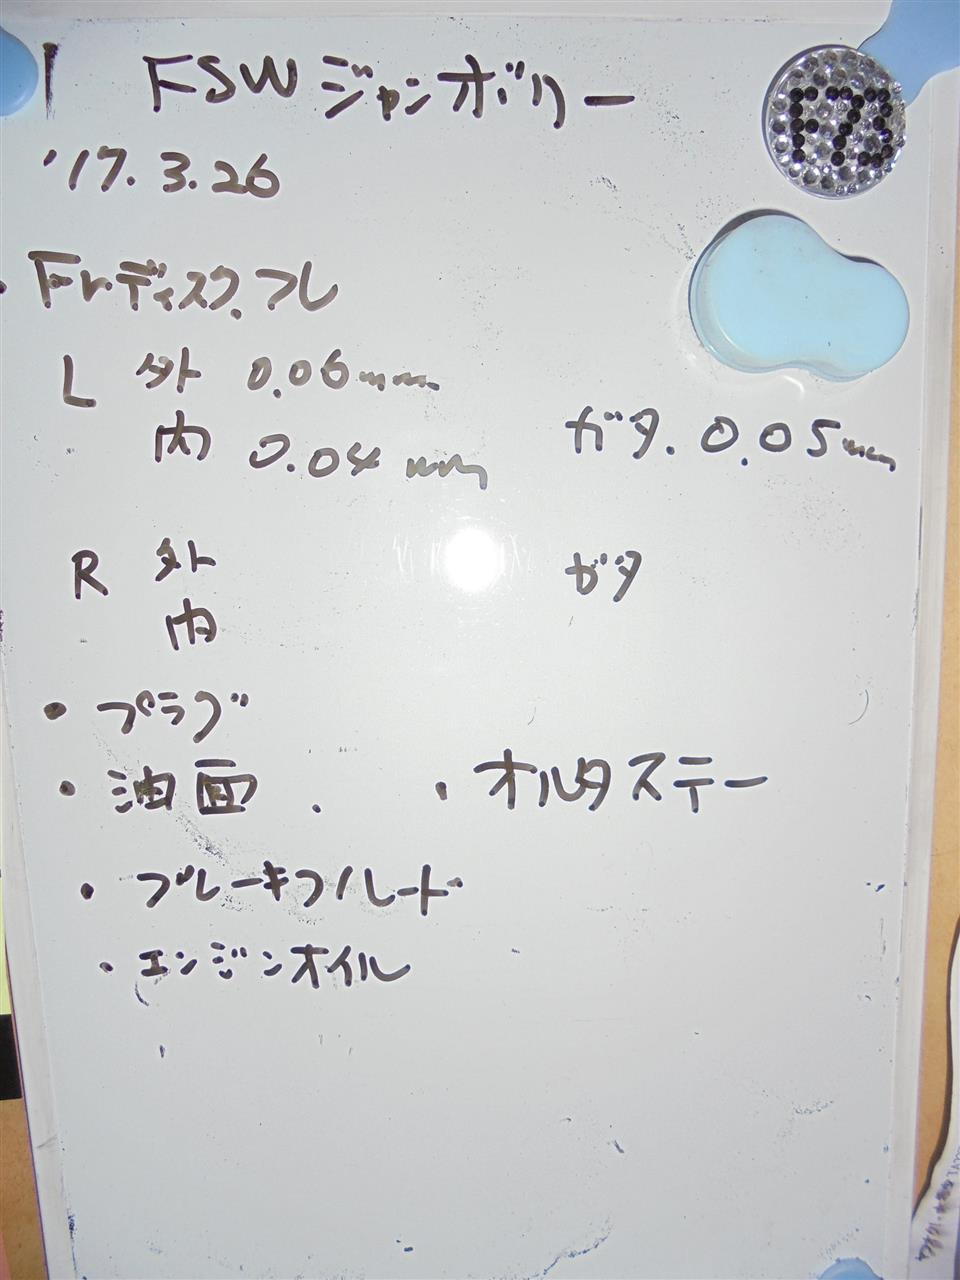 FSW ジャンボリー
'17.3.26
F73
・Frディスク フレ
L 外 0.06mm
内 0.04mm ガタ. 0.05mm
R 外 ガタ
内
・プラグ
・油面 ・オルタステー
・ブレーキフルード
・エンジンオイル